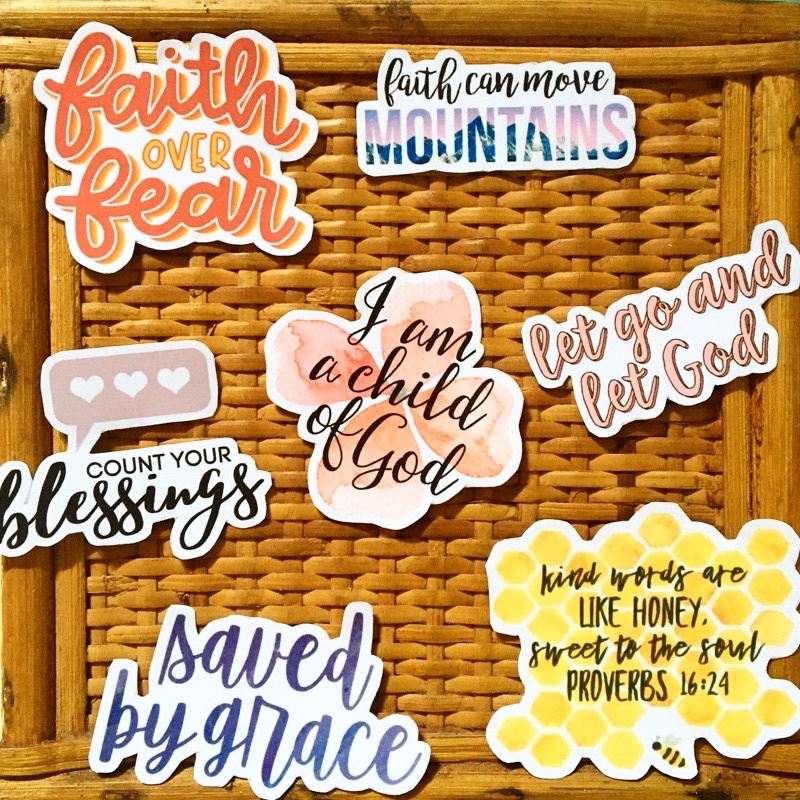 faith
OVER
fear
faith can move
MOUNTAINS
let go and
let God
I am
a child
of God
COUNT YOUR
blessings
kind words are
LIKE HONEY,
sweet to the soul
PROVERBS 16:24
saved
by grace